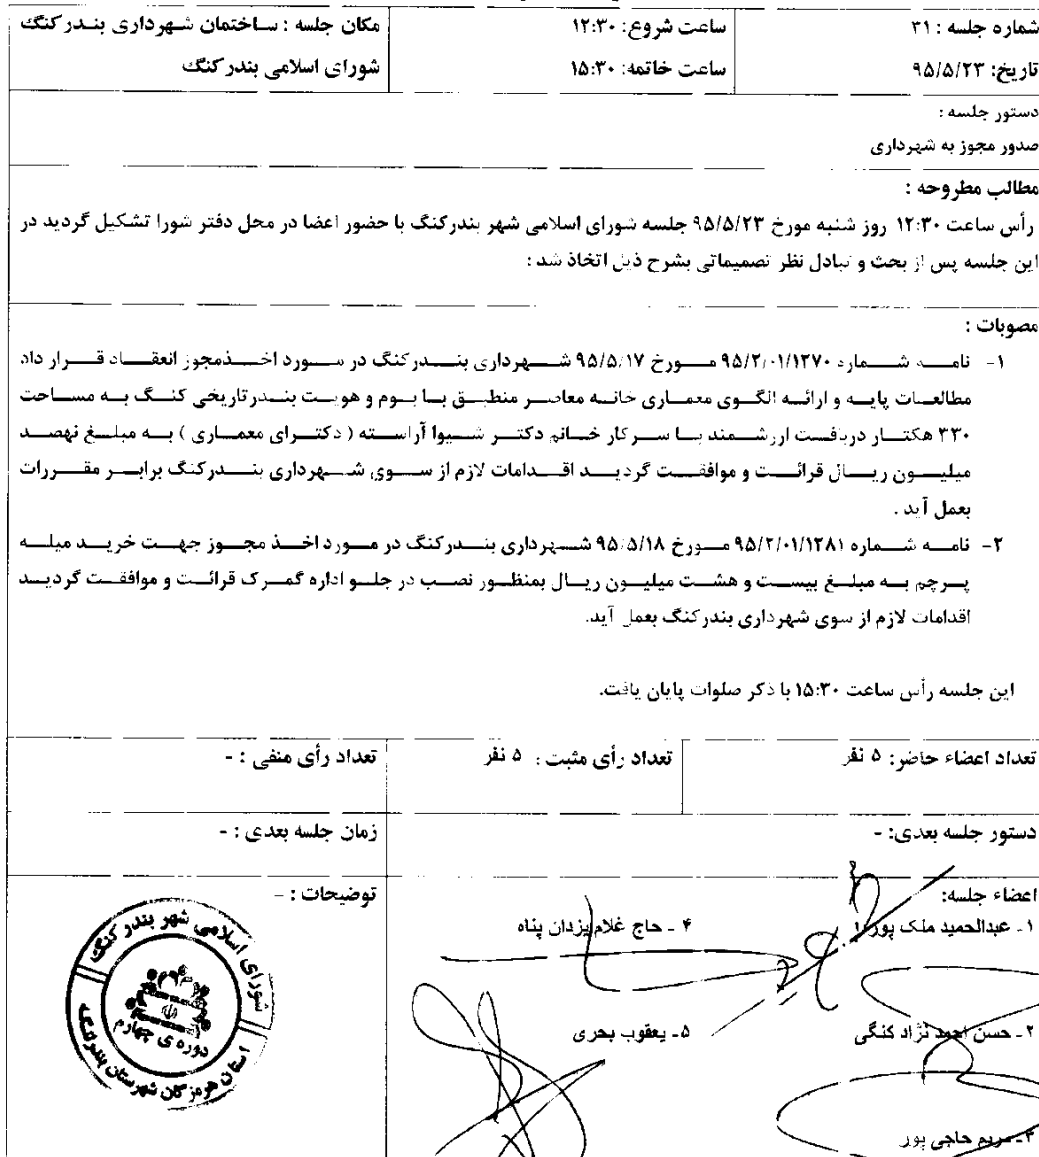 شماره جلسه : ۳۱
ساعت شروع: ۱۲:۳۰
مکان جلسه : ساختمان شهرداری بندرکنگ
تاریخ: ۹۵/۵/۲۳
ساعت خاتمه: ۱۵:۳۰
شورای اسلامی بندرکنگ
دستور جلسه :
صدور مجوز به شهرداری
مطالب مطروحه :
رأس ساعت ۱۲:۳۰ روز شنبه مورخ ۹۵/۵/۲۳ جلسه شورای اسلامی شهر بندرکنگ با حضور اعضا در محل دفتر شورا تشکیل گردید در
این جلسه پس از بحث و تبادل نظر تصمیماتی بشرح ذیل اتخاذ شد :
مصوبات :
۱- نامه شماره ۹۵/۲/۰۱/۱۲۷۰ مورخ ۹۵/۵/۱۷ شهرداری بندرکنگ در مورد اخذمجوز انعقاد قرار داد
مطالعات پایه و ارائه الگوی معماری خانه معاصر منطبق با بوم و هویت بندرتاریخی کنگ به مساحت
۳۳۰ هکتار دریافت ارزشمند با سرکار خانم دکتر شیوا آراسته ( دکترای معماری ) به مبلغ نهصد
میلیون ریال قرائت و موافقت گردید اقدامات لازم از سوی شهرداری بندرکنگ برابر مقررات
بعمل آید .
۲- نامه شماره ۹۵/۲/۰۱/۱۲۸۱ مورخ ۹۵/۵/۱۸ شهرداری بندرکنگ در مورد اخذ مجوز جهت خرید میله
پرچم به مبلغ بیست و هشت میلیون ریال بمنظور نصب در جلو اداره گمرک قرائت و موافقت گردید
اقدامات لازم از سوی شهرداری بندرکنگ بعمل آید.
این جلسه رأس ساعت ۱۵:۳۰ با ذکر صلوات پایان یافت.
تعداد اعضاء حاضر: ۵ نفر
تعداد رأی مثبت : ۵ نفر
تعداد رأی منفی : -
دستور جلسه بعدی: -
زمان جلسه بعدی : -
اعضاء جلسه:
توضیحات : -
۱ - عبدالحمید ملک پور
۴ - حاج غلام یزدان پناه
۲ - حسن احمد نژاد کنگی
۵ - یعقوب بحری
۳ - مریم حاجی پور
شورای اسلامی شهر بندر کنگ
دوره ی چهارم
استان هرمزگان شهرستان بندرلنگه